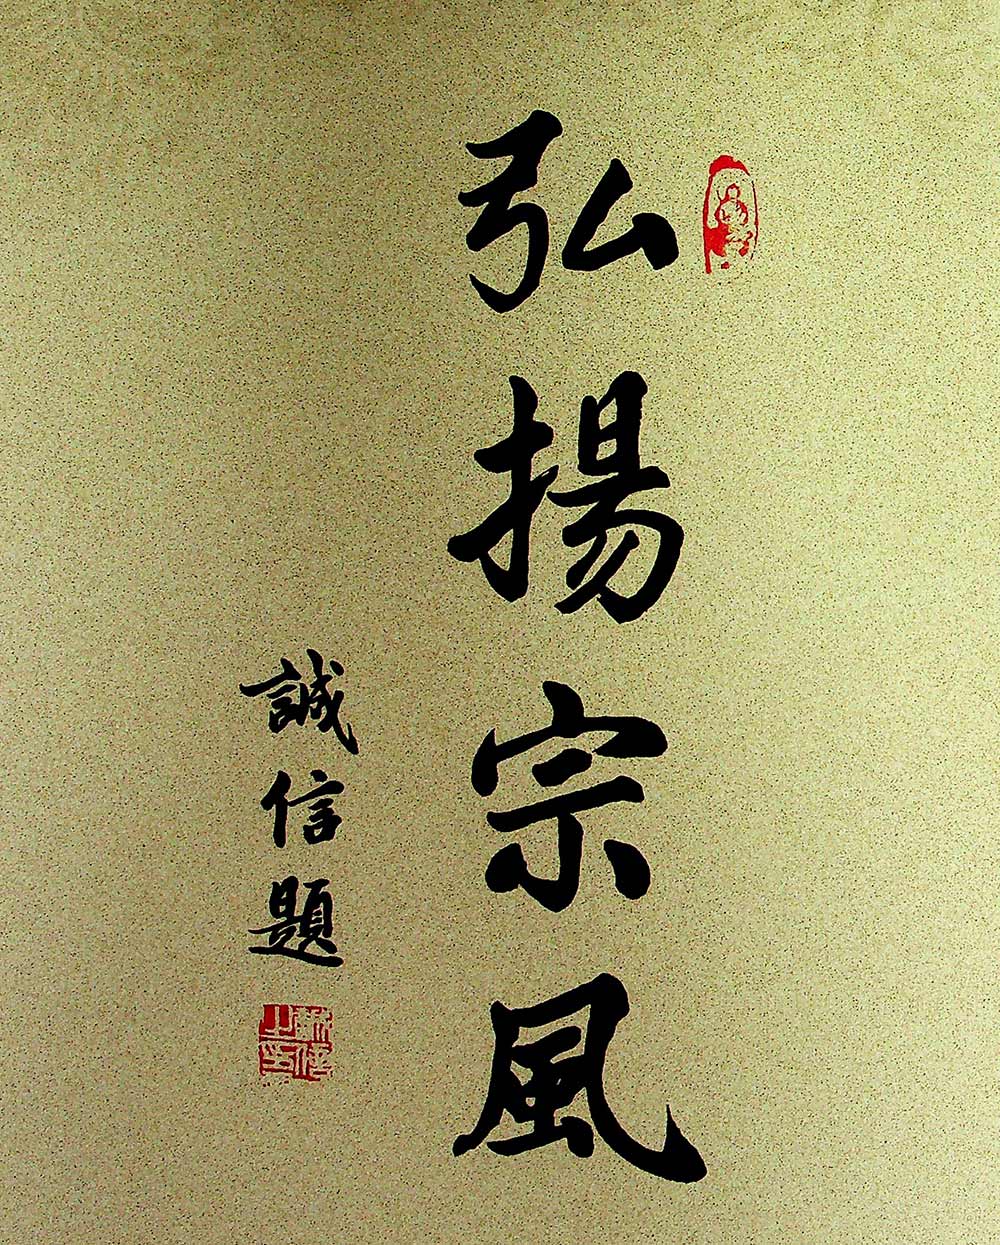 弘揚宗風
誠信題